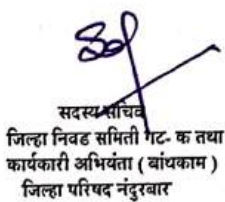 सदस्य सचिव
जिल्हा निवड समिती गट- क तथा
कार्यकारी अभियंता ( बांधकाम )
जिल्हा परिषद नंदुरबार